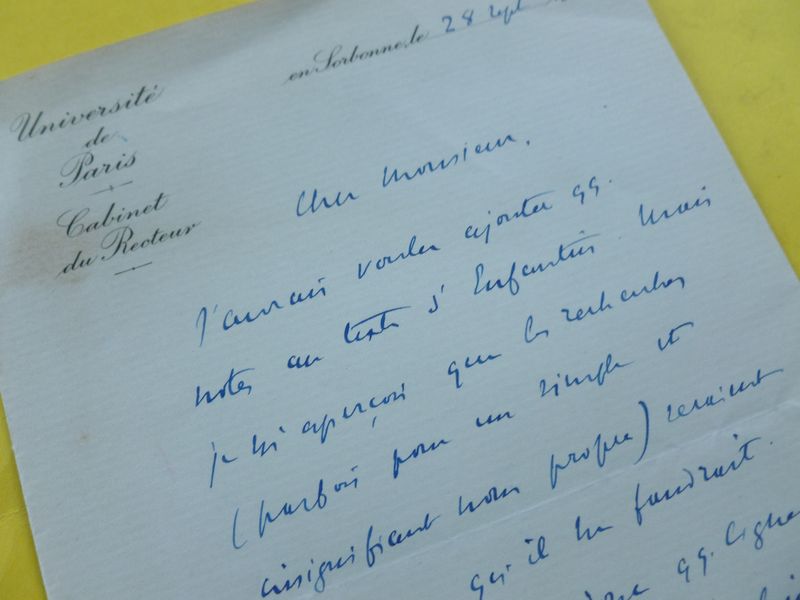 Université
de
Paris
Cabinet
du Recteur
en Sorbonne, le 28 Sept
Cher Monsieur,
J'aurais voulu ajouter qq.
notes au texte d'Enfantin. Mais
je m'aperçois que les recherches
(parfois pour un simple et
insignifiant nom propre) seraient
qu'il me faudrait.
qq. lignes